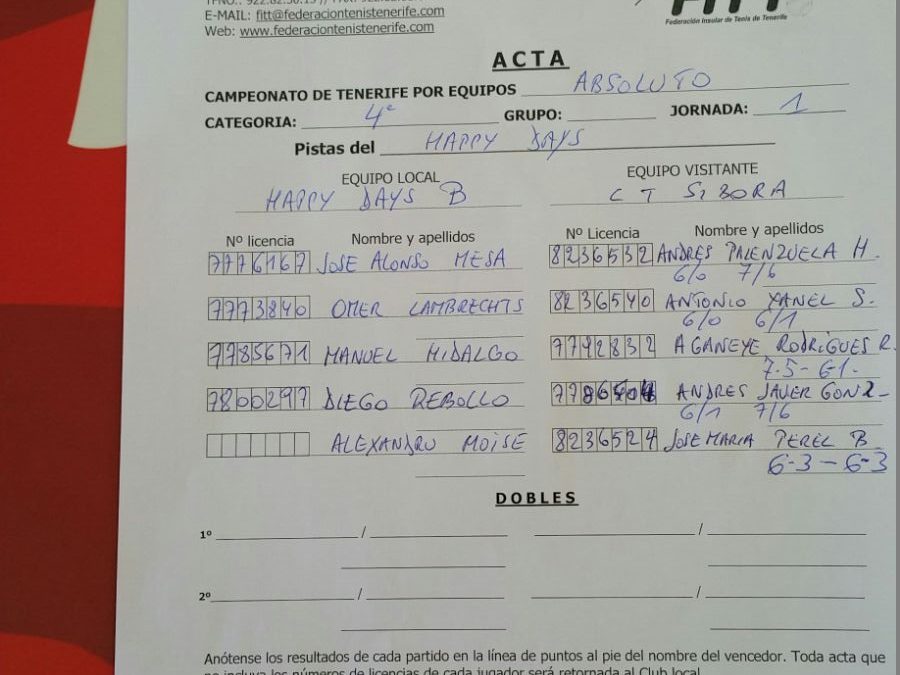 E-MAIL: fitt@federaciontenistenerife.com
Web: www.federaciontenistenerife.com
Federación Insular de Tenis de Tenerife
ACTA
CAMPEONATO DE TENERIFE POR EQUIPOS ABSOLUTO
CATEGORIA: 4ª GRUPO: JORNADA: 1
Pistas del HAPPY DAYS
EQUIPO LOCAL EQUIPO VISITANTE
HAPPY DAYS B CT SIBORA
Nº licencia Nombre y apellidos Nº Licencia Nombre y apellidos
7776167 JOSE ALONSO MESA 8236532 ANDRES PALENZUELA H.
6/0 7/6
7773840 OMER LAMBRECHTS 8236540 ANTONIO YANEL S.
6/0 6/1
7785671 MANUEL HIDALGO 7792832 AGANEYE RODRIGUES R.
7-5 - 6-1.
7800297 DIEGO REBOLLO ANDRES JAVIER GONZ-
6/1 7/6
ALEXANDRU MOISE 8236524 JOSE MARIA PEREL B
6-3 - 6-3
DOBLES
1º / /
2º / /
Anótense los resultados de cada partido en la línea de puntos al pie del nombre del vencedor. Toda acta que
no incluya los números de licencias de cada jugador será retornada al Club local.